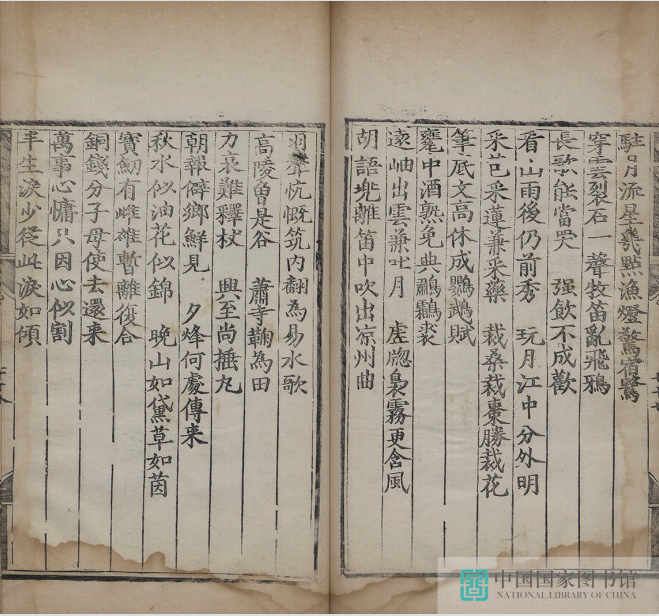 駐月流星幾點漁燈驚宿鷺
穿雲裂石一聲牧笛亂飛鴉
長歌能當哭　強飲不成歡
看山雨後仍前秀　玩月江中分外明
采芑采蓮兼采藥　栽桑栽棗勝栽花
筆底文高休成鸚鵡賦
甕中酒熟免典鷫鸘裘
遠岫出雲兼吐月　虛牎裊霧更含風
胡語兜離笛中吹出凉州曲
羽聲忼慨筑內翻為易水歌
高陵曾是谷　蕭寺鞠為田
力衰難釋杖　興至尚捶丸
朝報僻鄉鮮見　夕烽何處傳來
秋水似油花似錦　晚山如黛草如茵
寶劒有雌雄暫離復合
銅錢分子母使去還來
萬事心慵只因心似割
半生淚少從此淚如傾
中国国家图书馆
NATIONAL LIBRARY OF CHINA